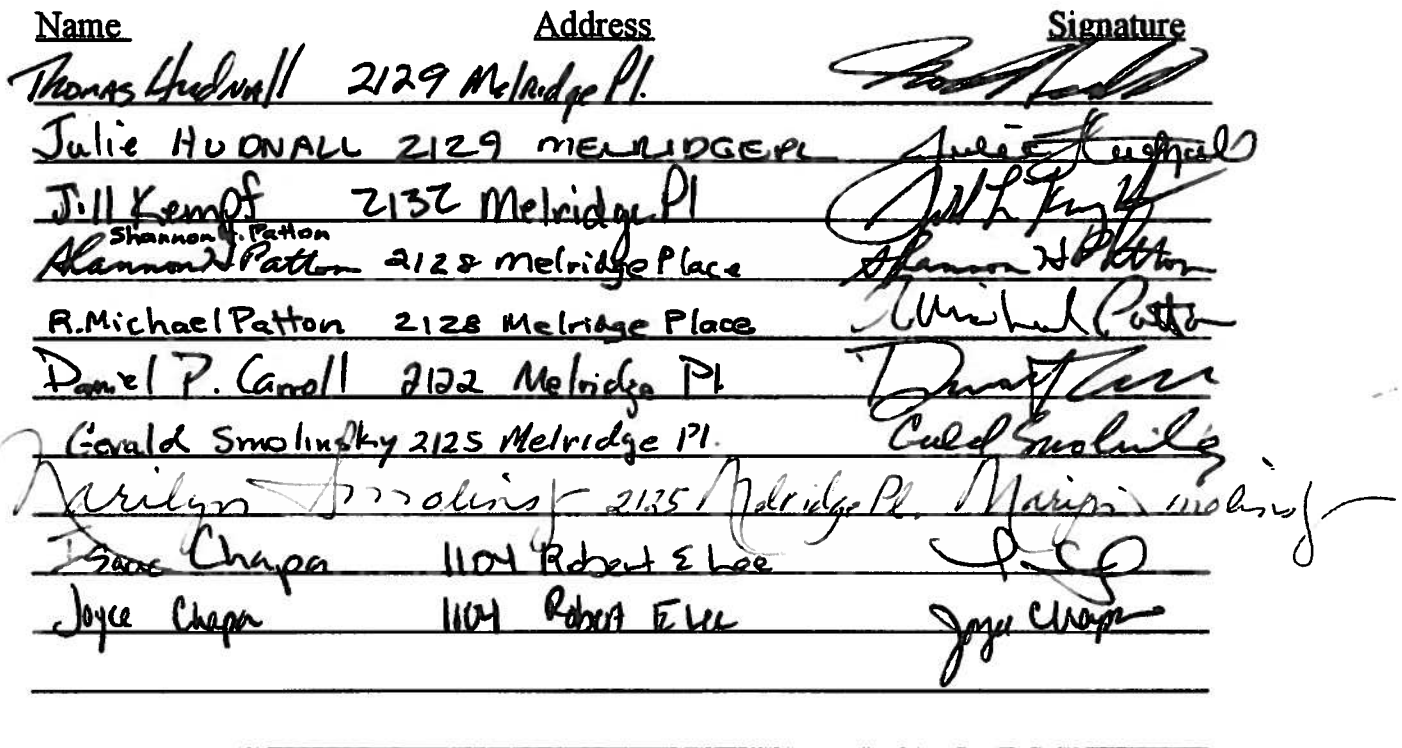 Name Address Signature
Thomas Hudnall 2129 Melridge Pl.
Julie HUDNALL 2129 MELRIDGE PL Julie Hudnall
Jill Kempf 2132 Melridge Pl Jill L Kempf
Shannon H. Patton
Shannon H Patton 2128 Melridge Place Shannon H Patton
R. Michael Patton 2128 Melridge Place Michael Patton
Daniel P. Carroll 2122 Melridge Pl
Gerald Smolinsky 2125 Melridge Pl. Gerald Smolinsky
Marilyn Smolinsky 2125 Melridge Pl. Marilyn Smolinsky
Isaac Chapa 1104 Robert E Lee
Joyce Chapa 1104 Robert E Lee Joyce Chapa